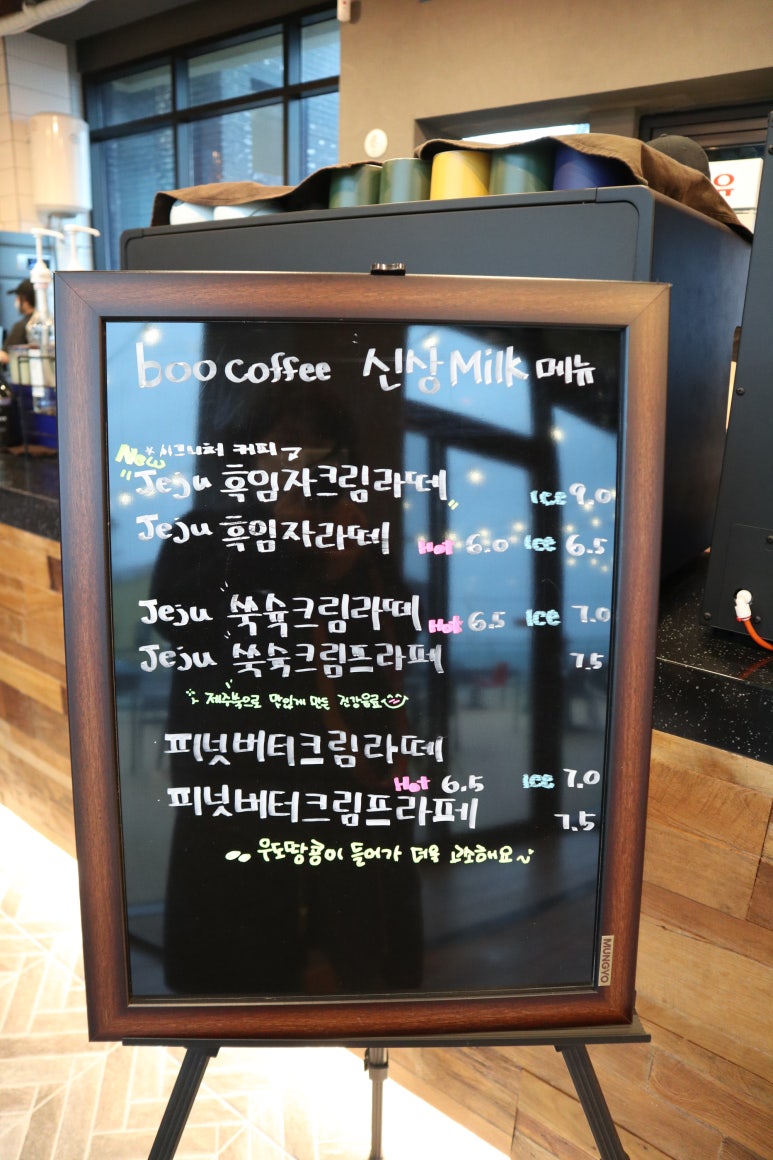 boo coffee 신상 Milk 메뉴
New * 시그니처 커피
"Jeju 흑임자크림라떼" Ice 9.0
Jeju 흑임자라떼 Hot 6.0 Ice 6.5
Jeju 쑥슉크림라떼 Hot 6.5 Ice 7.0
Jeju 쑥슉크림프라페 7.5
제주쑥으로 맛있게 만든 건강음료
피넛버터크림라떼
Hot 6.5 Ice 7.0
피넛버터크림프라페 7.5
우도땅콩이 들어가 더욱 고소해요~
MUNGYO